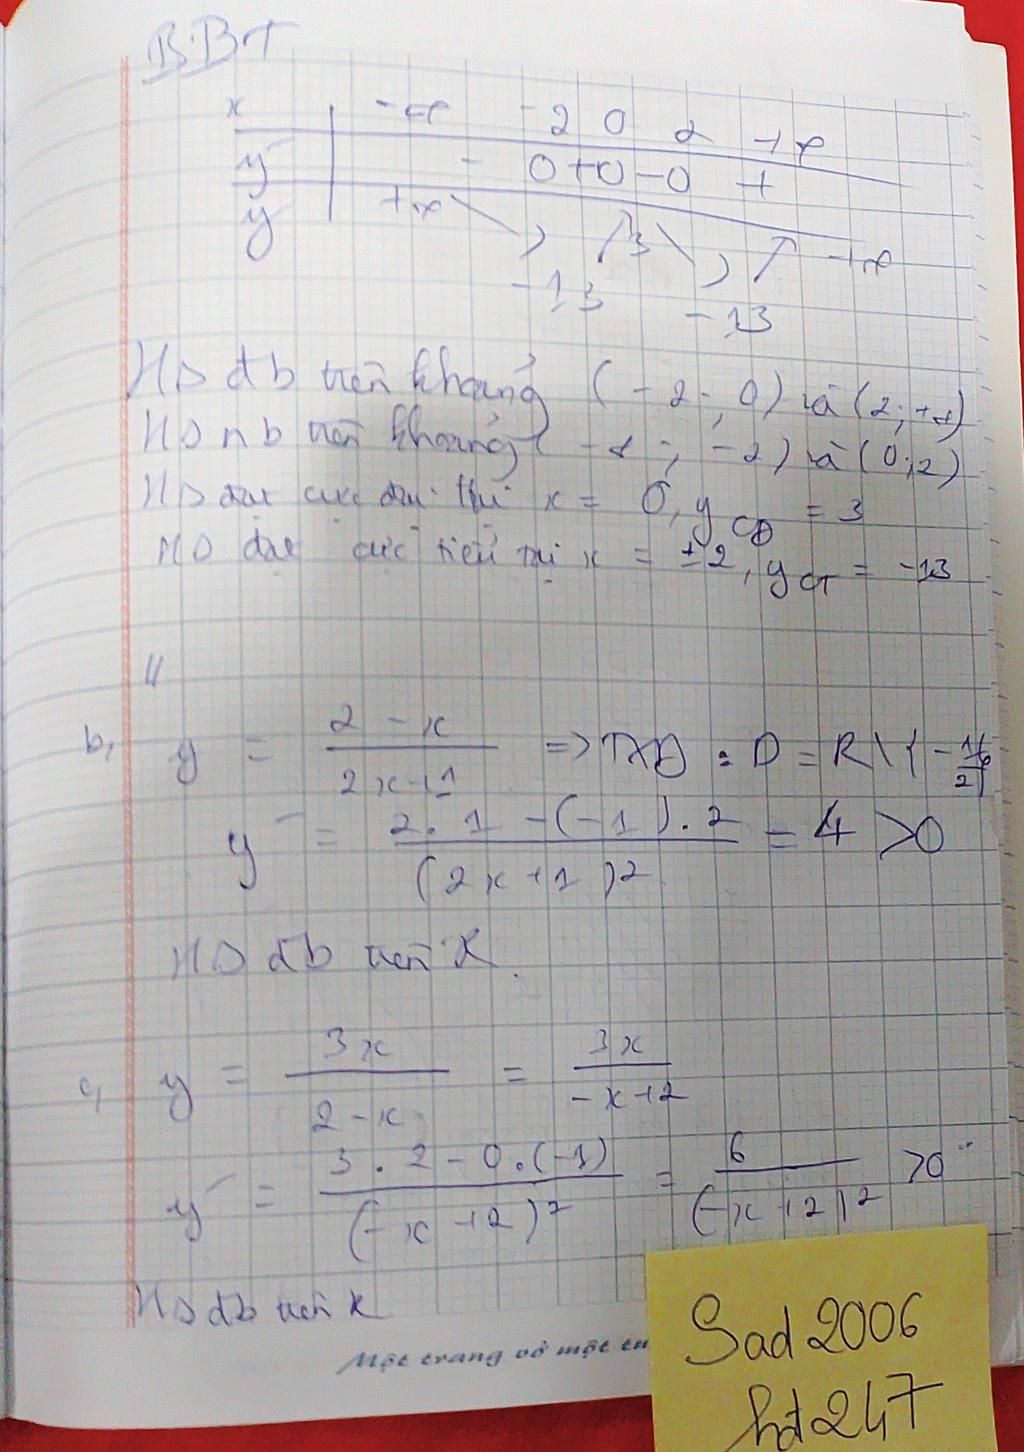 B.BT
x -∞ -2 0 2 +∞
y' - 0 + 0 - 0 +
y +∞ 3 +∞
-13 -13
HS đb trên khoảng (-2; 0) và (2; +∞)
HS nb trên khoảng (-∞; -2) và (0; 2)
HS đạt cực đại tại x = 0, yCĐ = 3
HS đạt cực tiểu tại x = ±2, yCT = -13
b, y = (2 - x)/(2x + 1) => TXĐ : D = R \ {-1/2}
y' = (2.1 - (-1).2)/(2x + 1)² = 4 > 0
HS đb trên R.
c, y = 3x/(2 - x) = 3x/(-x + 2)
y' = (3.2 - 0.(-1))/(-x + 2)² = 6/(-x + 2)² > 0
HS đb trên R
Một trang vở một
Sad2006
hd247